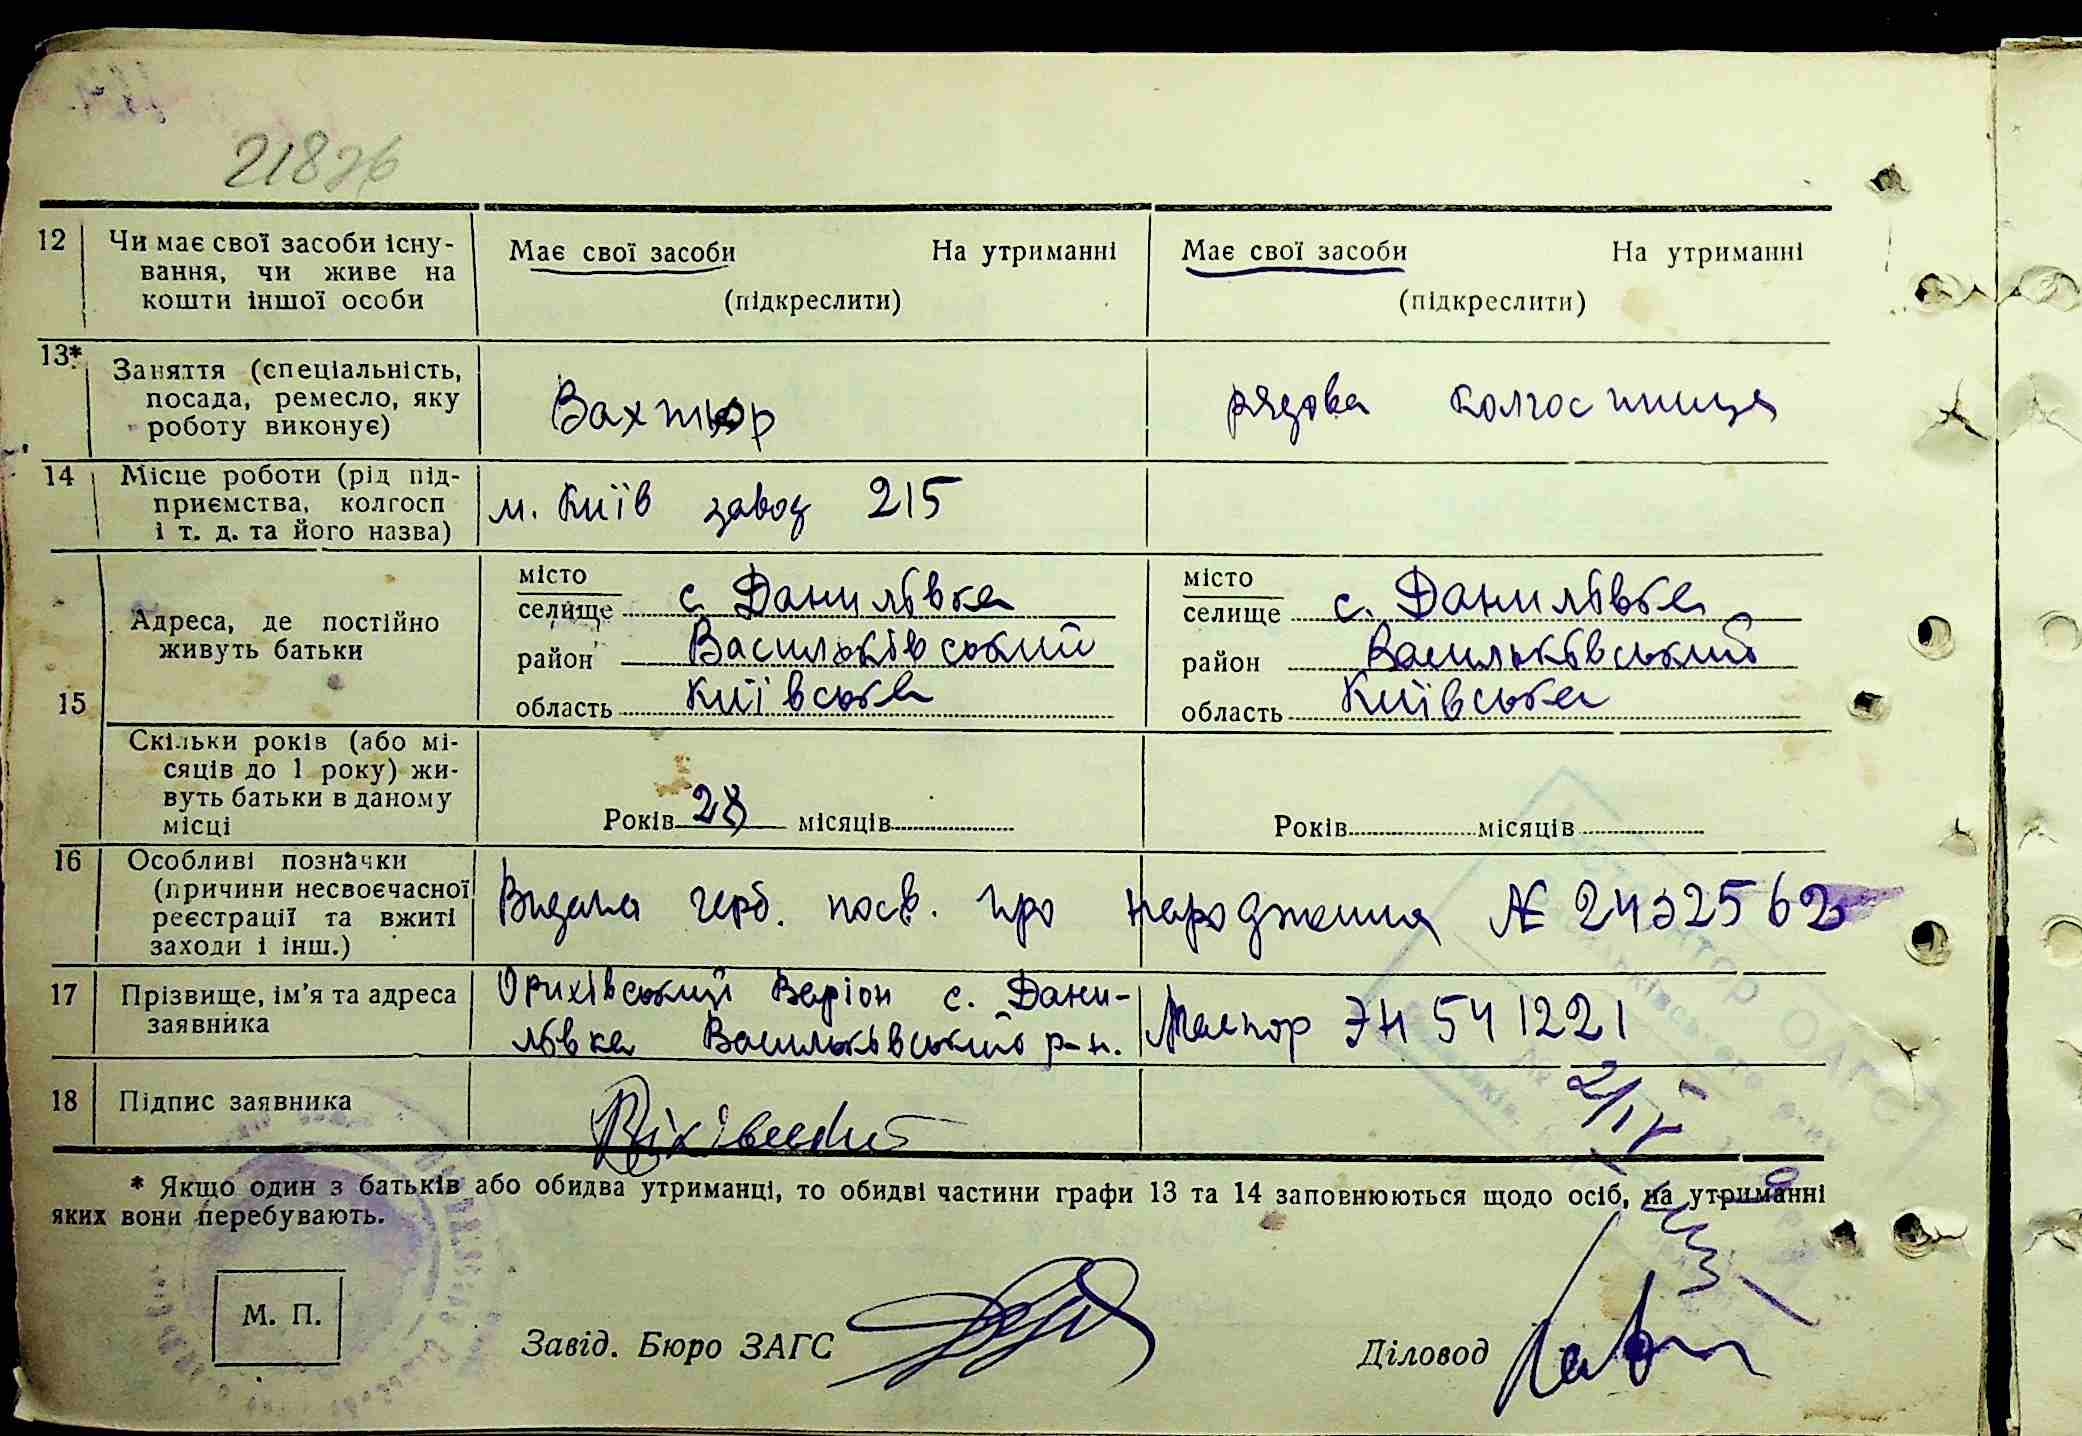 218
12 Чи має свої засоби існу-
вання, чи живе на
кошти іншої особи
Має свої засоби На утриманні
(підкреслити)
Має свої засоби На утриманні
(підкреслити)
13* Заняття (спеціальність,
посада, ремесло, яку
роботу виконує)
Вахтюр
рядова колгоспниця
14 Місце роботи (рід під-
приємства, колгосп
і т. д. та його назва)
м. Київ завод 215
15 Адреса, де постійно
живуть батьки
місто
селище с Данилівка
район Васильківський
область Київська
місто
селище с. Данилівка
район Васильківський
область Київська
Скільки років (або мі-
сяців до 1 року) жи-
вуть батьки в даному
місці
Років 28 місяців
Років місяців
16 Особливі позначки
(причини несвоєчасної
реєстрації та вжиті
заходи і інш.)
Видана герб. посв. про народження № 2432562
17 Прізвище, ім'я та адреса
заявника
Орихівський с. Дани-
лівка Васильківського р-н.
Паспор ЭН 541221
18 Підпис заявника
* Якщо один з батьків або обидва утриманці, то обидві частини графи 13 та 14 заповнюються щодо осіб, на утриманні
яких вони перебувають.
М. П.
Завід. Бюро ЗАГС
Діловод